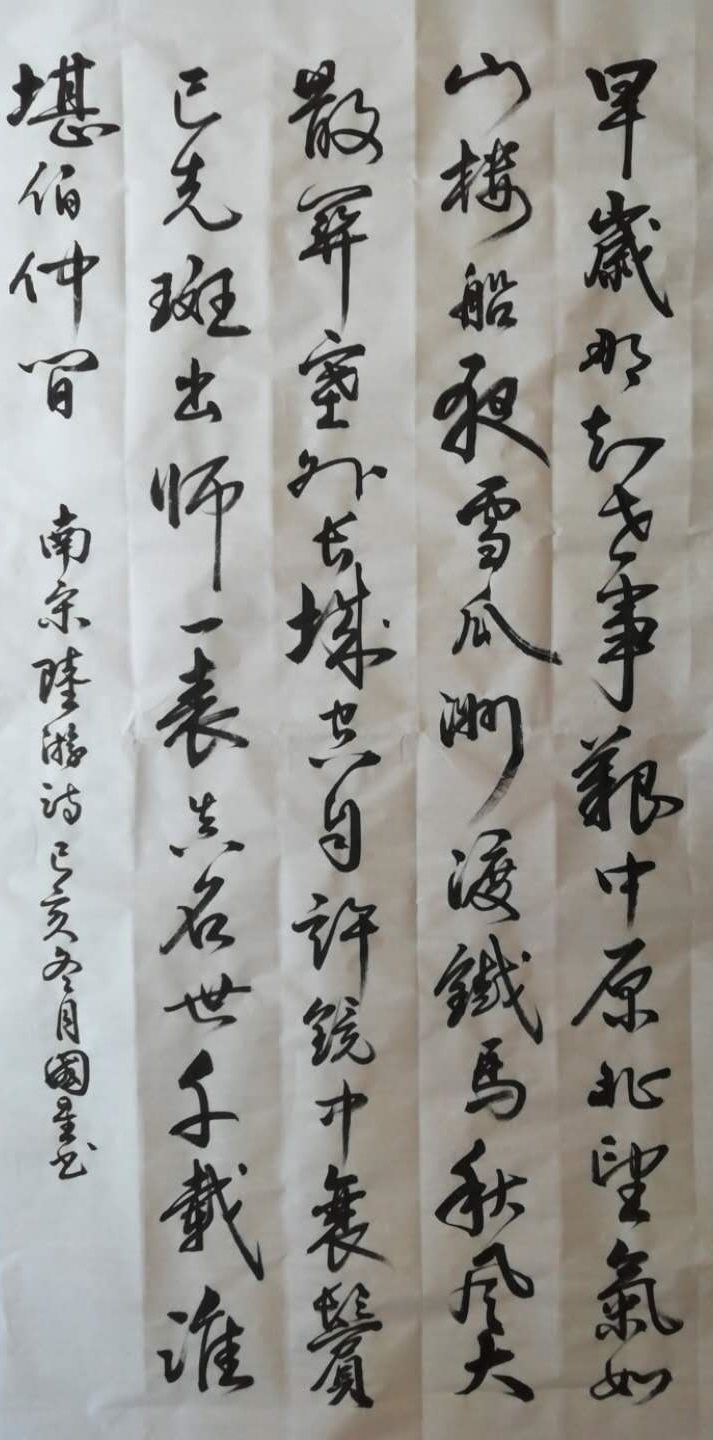 早歲那知世事艱中原北望氣如
山樓船夜雪瓜洲渡鐵馬秋風大
散關塞外長城空自許鏡中衰鬢
已先斑出師一表真名世千載誰
堪伯仲間
南宋陸游詩己亥冬月國星書